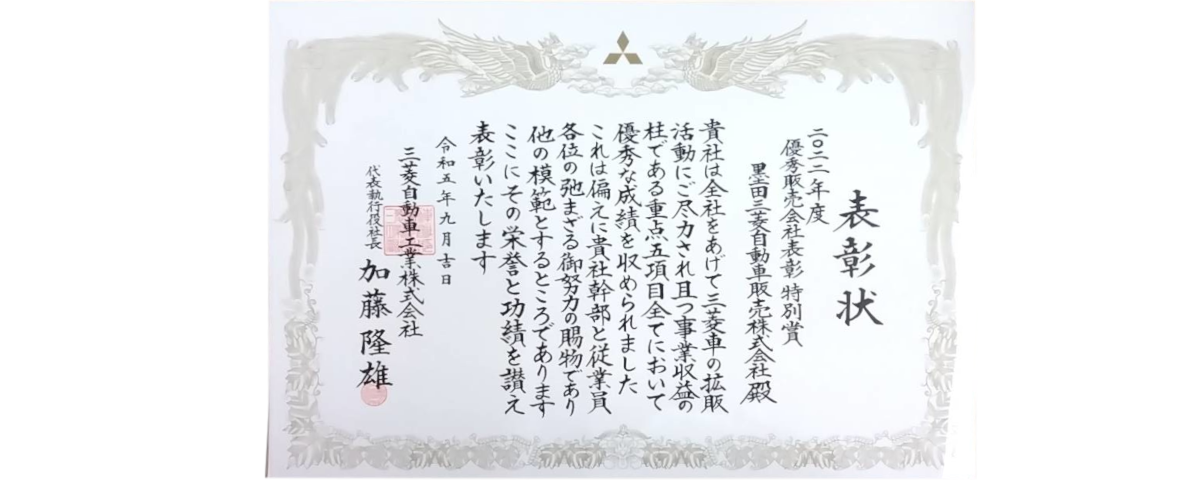 表彰状
二〇二二年度
優秀販売会社表彰 特別賞
墨田三菱自動車販売株式会社殿
貴社は全社をあげて三菱車の拡販
活動にご尽力され且つ事業収益の
柱である重点五項目全てにおいて
優秀な成績を収められました
これは偏えに貴社幹部と従業員
各位の弛まざる御努力の賜物であり
他の模範とするところであります
ここにその栄誉と功績を讃え
表彰いたします
令和五年九月吉日
三菱自動車工業株式会社
代表執行役社長 加藤隆雄